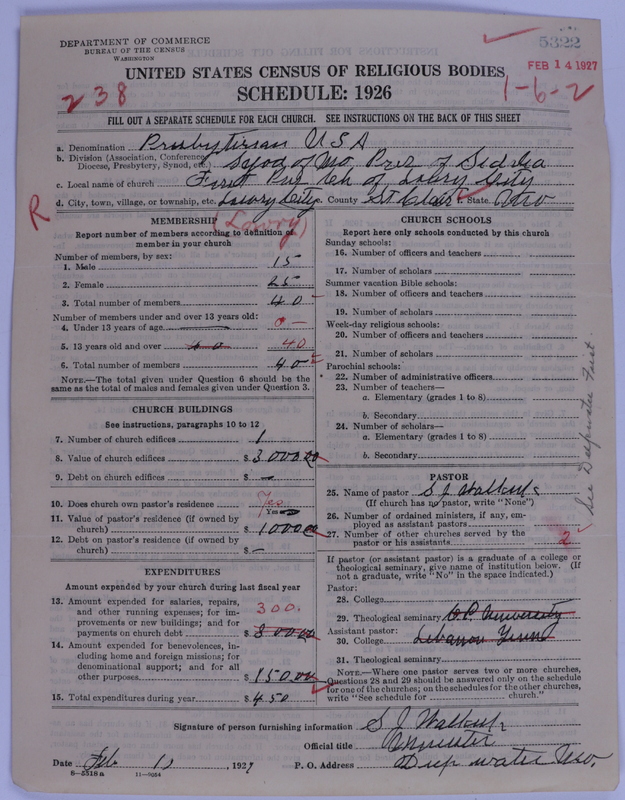 DEPARTMENT OF COMMERCE
BUREAU OF THE CENSUS
WASHINGTON
5322
FEB 14 1927
UNITED STATES CENSUS OF RELIGIOUS BODIES
SCHEDULE: 1926
238
1-6-2
FILL OUT A SEPARATE SCHEDULE FOR EACH CHURCH. SEE INSTRUCTIONS ON THE BACK OF THIS SHEET
a. Denomination Presbyterian U S A
b. Division (Association, Conference, Diocese, Presbytery, Synod, etc.) Synod of Mo Prez of Sedalia
c. Local name of church First Pres Ch of Lowry City
d. City, town, village, or township, etc. Lowry City e. County St Clair f. State Mo
R
(Lowry)
MEMBERSHIP
Report number of members according to definition of
member in your church
Number of members, by sex:
1. Male 15
2. Female 25
3. Total number of members 40
Number of members under and over 13 years old:
4. Under 13 years of age 0
5. 13 years old and over 40 40
6. Total number of members 40
NOTE.—The total given under Question 6 should be the
same as the total of males and females given under Question 3.
CHURCH BUILDINGS
See instructions, paragraphs 10 to 12
7. Number of church edifices 1
8. Value of church edifices $ 3000.00
9. Debt on church edifices $ —
10. Does church own pastor's residence Yes
Yes or No
11. Value of pastor's residence (if owned by
church) $ 1000.00
12. Debt on pastor's residence (if owned by
church) $ —
EXPENDITURES
Amount expended by your church during last fiscal year
13. Amount expended for salaries, repairs,
and other running expenses; for im-
provements or new buildings; and for
payments on church debt $ 300. 300.00
14. Amount expended for benevolences, in-
cluding home and foreign missions; for
denominational support; and for all
other purposes $ 150.00
15. Total expenditures during year $ 450
CHURCH SCHOOLS
Report here only schools conducted by this church
Sunday schools:
16. Number of officers and teachers
17. Number of scholars
Summer vacation Bible schools:
18. Number of officers and teachers
19. Number of scholars
Week-day religious schools:
20. Number of officers and teachers
21. Number of scholars
Parochial schools:
22. Number of administrative officers
23. Number of teachers—
a. Elementary (grades 1 to 8)
b. Secondary
24. Number of scholars—
a. Elementary (grades 1 to 8)
b. Secondary
See Deepwater First
PASTOR
25. Name of pastor S J
(If church has no pastor, write "None")
26. Number of ordained ministers, if any, em-
ployed as assistant pastors
27. Number of other churches served by the
pastor or his assistants 2
If pastor (or assistant pastor) is a graduate of a college or
theological seminary, give name of institution below. (If
not a graduate, write "No" in the space indicated.)
Pastor:
28. College
29. Theological seminary University
Assistant pastor:
30. College Lebanon Tenn
31. Theological seminary
NOTE.—Where one pastor serves two or more churches,
Questions 28 and 29 should be answered only on the schedule
for one of the churches; on the schedules for the other churches,
write "See schedule for church."
Signature of person furnishing information S J
Official title Minister
Date Feb 1927 P. O. Address Deepwater Mo.
8-5518a 11-9084